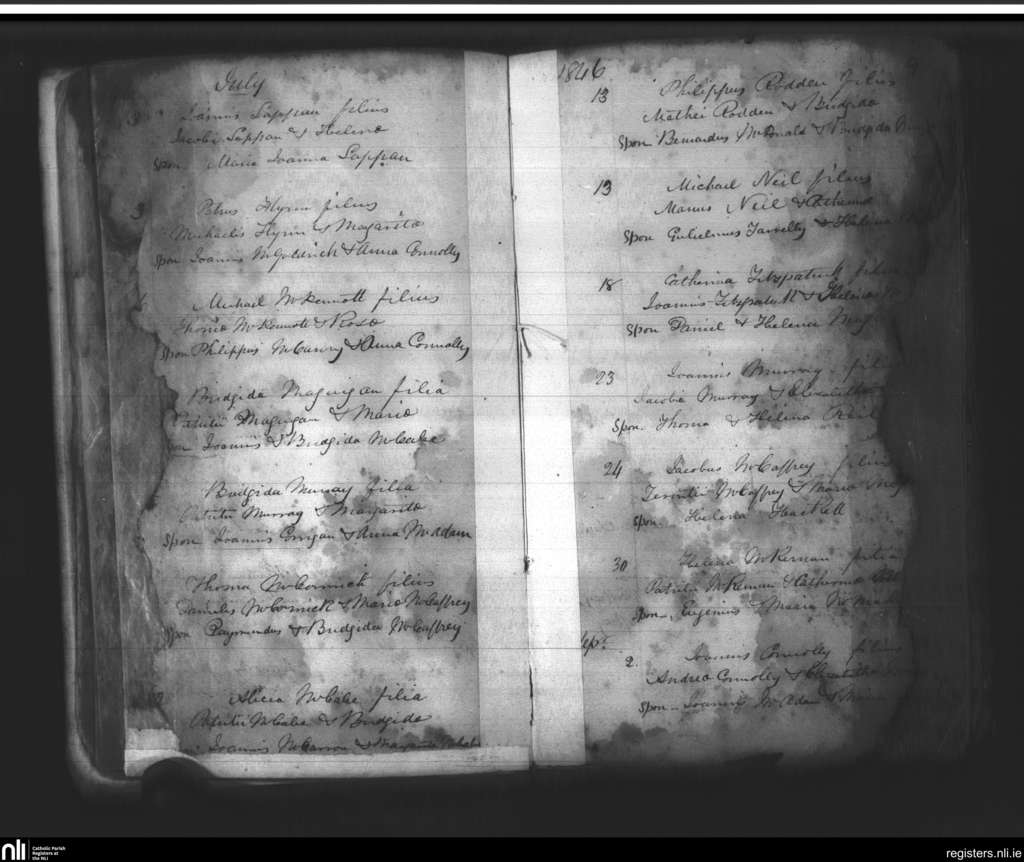 July
3 Joannis Lappan filius
Jacobi Lappan & Helena
Spon Maria Joanna Lappan
3 Petrus Flynn filius
Michaelis Flynn & Magarita
Spon Joannis McGoldrick & Anna Connolly
Michael McKermott filius
Thoma McKermott & Rosa
Spon Philippus & Anna Connolly
Bridgida Maguigan filia
Patritii Maguigan & Maria
Joannis & Bridgida McCabe
Bridgida Murray filia
Patritii Murray & Margarita
Spon Joannis Corrigan & Anna McAdam
Thoma McCormick filius
McCormick & Maria McCaffrey
Spon Raymundus & Bridgida McCaffrey
Alicia McCabe filia
Patritii McCabe & Bridgida
Joannis McCarron & Margarita
1846
13 Philippus Rodden filius
Mathei Rodden & Bridgida
Spon Bernardus McDonald & Bridgida
13 Michael Neil filius
Manus Neil & Catherina
Spon Gulielmus & Helena
18 Catherina Fitzpatrick filia
Joannis Fitzpatrick & Helena
Spon Daniel & Helena
23 Joannis Murray fili
Jacobi Murray & Elizabetha
Spon. Thoma & Helena
24 Jacobus McCaffrey filius
Terentii McCaffrey & Maria
Spon Helena
30 Helena McKernan filia
Patritii McKernan & Catherina
Spon. Eugenius & Maria
Sep.
2. Joannis Connolly filius
Andrea Connolly & Elizabetha
Spon - Joannis McAdam & Maria
nli
Catholic Parish
Registers at
the NLI
registers.nli.ie